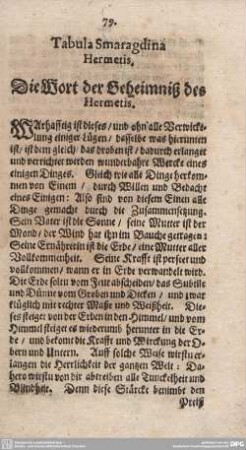 79.
Tabula Smaragdina
Hermetis.
Die Wort der Geheimniß des
Hermetis.
WArhafftig ist dieses/ und ohn' alle Verwicke-
lung einiger Lügen/ dasselbe was hierunten
ist/ ist dem gleich/ das droben ist/ dadurch erlanget
und verrichtet werden wunderbahre Wercke eines
einigen Dinges. Gleich wie alle Dinge herkom-
men von Einem/ durch Willen und Bedacht
eines Einigen: Also sind von diesem Einen alle
Dinge gemacht durch die Zusammensetzung.
Sein Vater ist die Sonne/ seine Mutter ist der
Mond/ der Wind hat ihn im Bauche getragen:
Seine Ernährerin ist die Erde/ eine Mutter aller
Vollkommenheit. Seine Krafft ist perfect und
vollkommen/ wann er in Erde verwandelt wird.
Die Erde soltu vom Feur abscheiden/ das Subtile
und Dünne vom Groben und Dicken/ und zwar
klüglich mit rechter Masse und Weißheit. Die-
ses steiget von der Erden in den Himmel/ und vom
Himmel steiget es wiederumb herunter in die Er-
de/ und bekomt die Krafft und Wirckung der O-
bern und Untern. Auff solche Weise wirstu er-
langen die Herrlichkeit der gantzen Welt: Da-
hero wirstu von dir abtreiben alle Tunckelheit und
Blindheit. Denn diese Stärcke benimbt den
Preiß